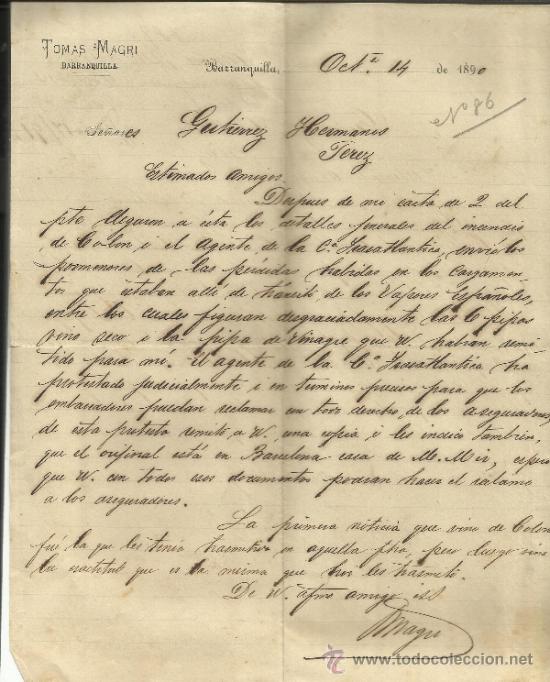 TOMAS MAGRI
BARRANQUILLA
Barranquilla, Oct.e 14 de 1890
Nº 86
Señores Gutierrez Hermanos
Jerez
Estimados amigos.
Despues de mi carta de 2 del
pte llegaron a ésta los detalles generales del incendio
de Colon i el Agente de la Cª Trasatlantica, envió los
pormenores, de las pérdidas habidas en los Cargamen-
tos que estaban allí de tránsito de los Vapores Españoles,
entre los cuales figuran desgraciadamente las 6 pipas
vino seco i la pipa de Vinagre que V. habian remi-
tido para mi. El agente de la Cª Trasatlantica ha
protestado judicialmente i en terminos precisos para que los
embarcadores puedan reclamar con todo derecho, de los aseguradores
de esta protesta remito a V. una copia i les indico tambien,
que el original está en Barcelona casa de M. Mir, espero
que V. con todos esos documentos podran hacer el reclamo
a los aseguradores.
La primera noticia que vino de Colon
fué la que les tenia trasmitida en aquella fha, pero luego vino
la exactitud que es la misma que hoy les trasmito.
De V. afmo amigo i SS
TMagri
www.todocoleccion.net